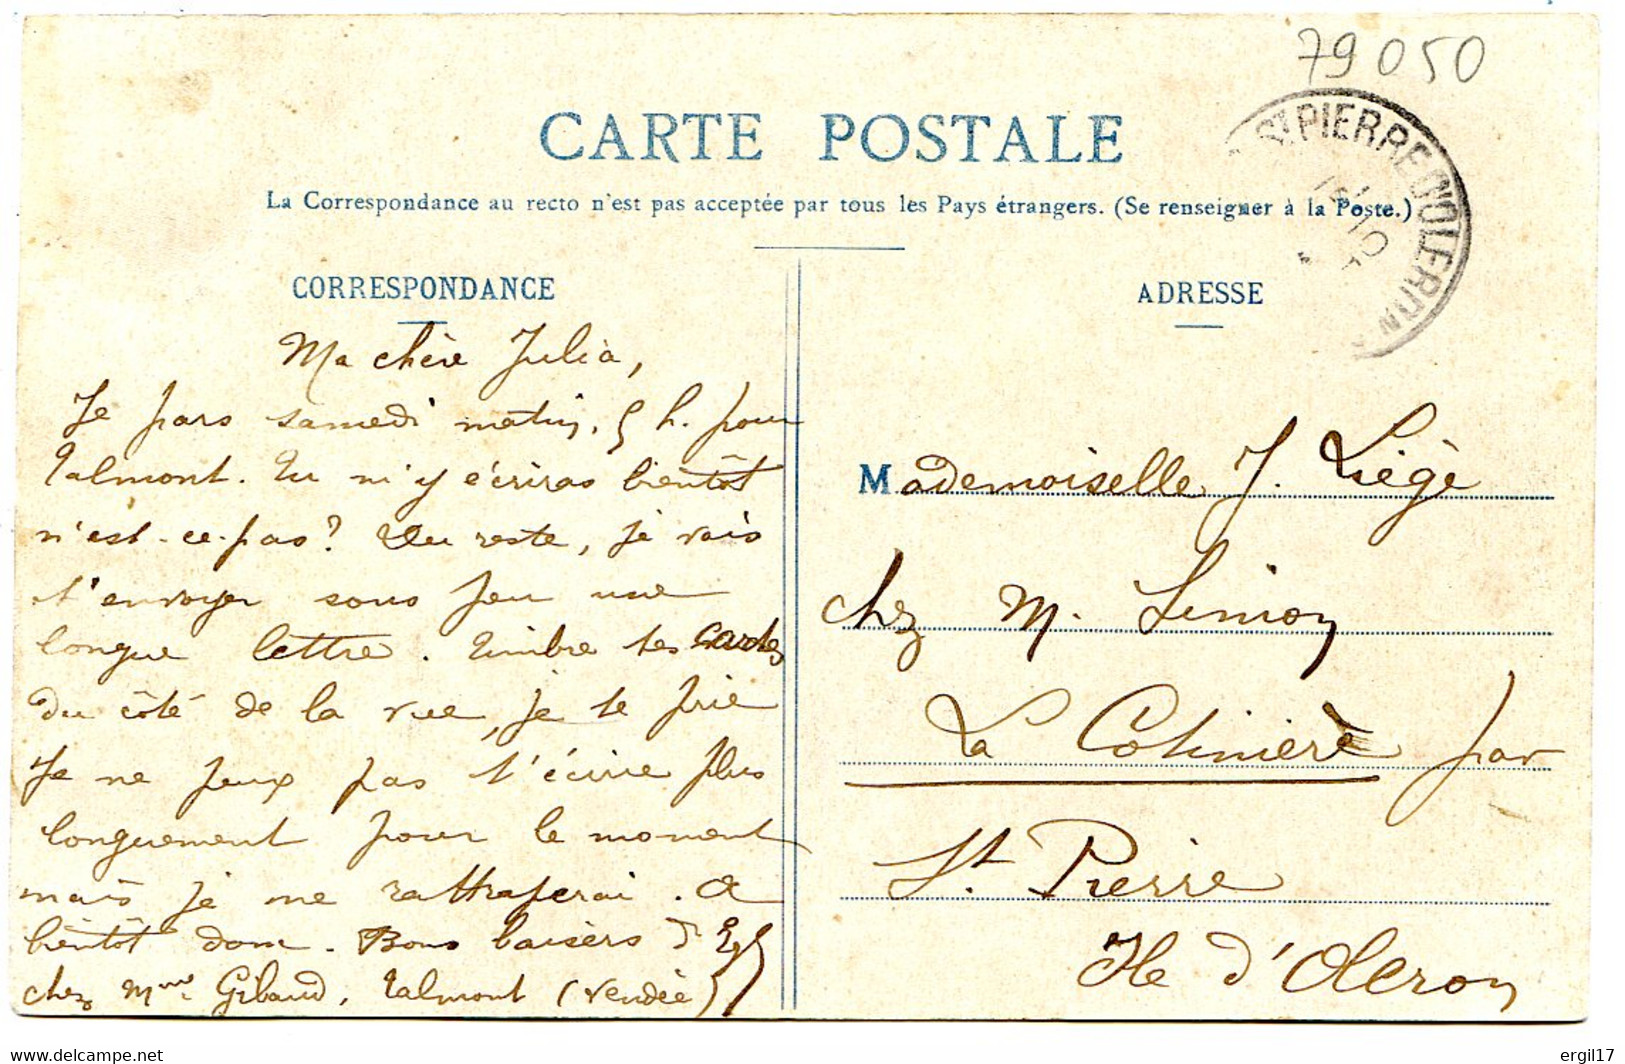 79050
CARTE POSTALE
La Correspondance au recto n'est pas acceptée par tous les Pays étrangers. (Se renseigner à la Poste.)
ST PIERRE D'OLERON
CORRESPONDANCE
Ma chère Julia,
Je pars samedi matin, 5 h. pour
Talmont. Tu m'y écriras bientôt
n'est-ce-pas? Du reste, je vais
t'envoyer sous peu une
longue lettre. Timbre tes cartes
du côté de la vue, je te prie
Je ne peux pas t'écrire plus
longuement pour le moment
mais je me rattraperai. A
bientôt donc. Bons baisers
chez Mme Gibaud, Talmont (Vendée)
ADRESSE
Mademoiselle J. Liège
chez M. Simon
La Cotinière par
St. Pierre
Ile d'Oleron
www.delcampe.net
ergil17